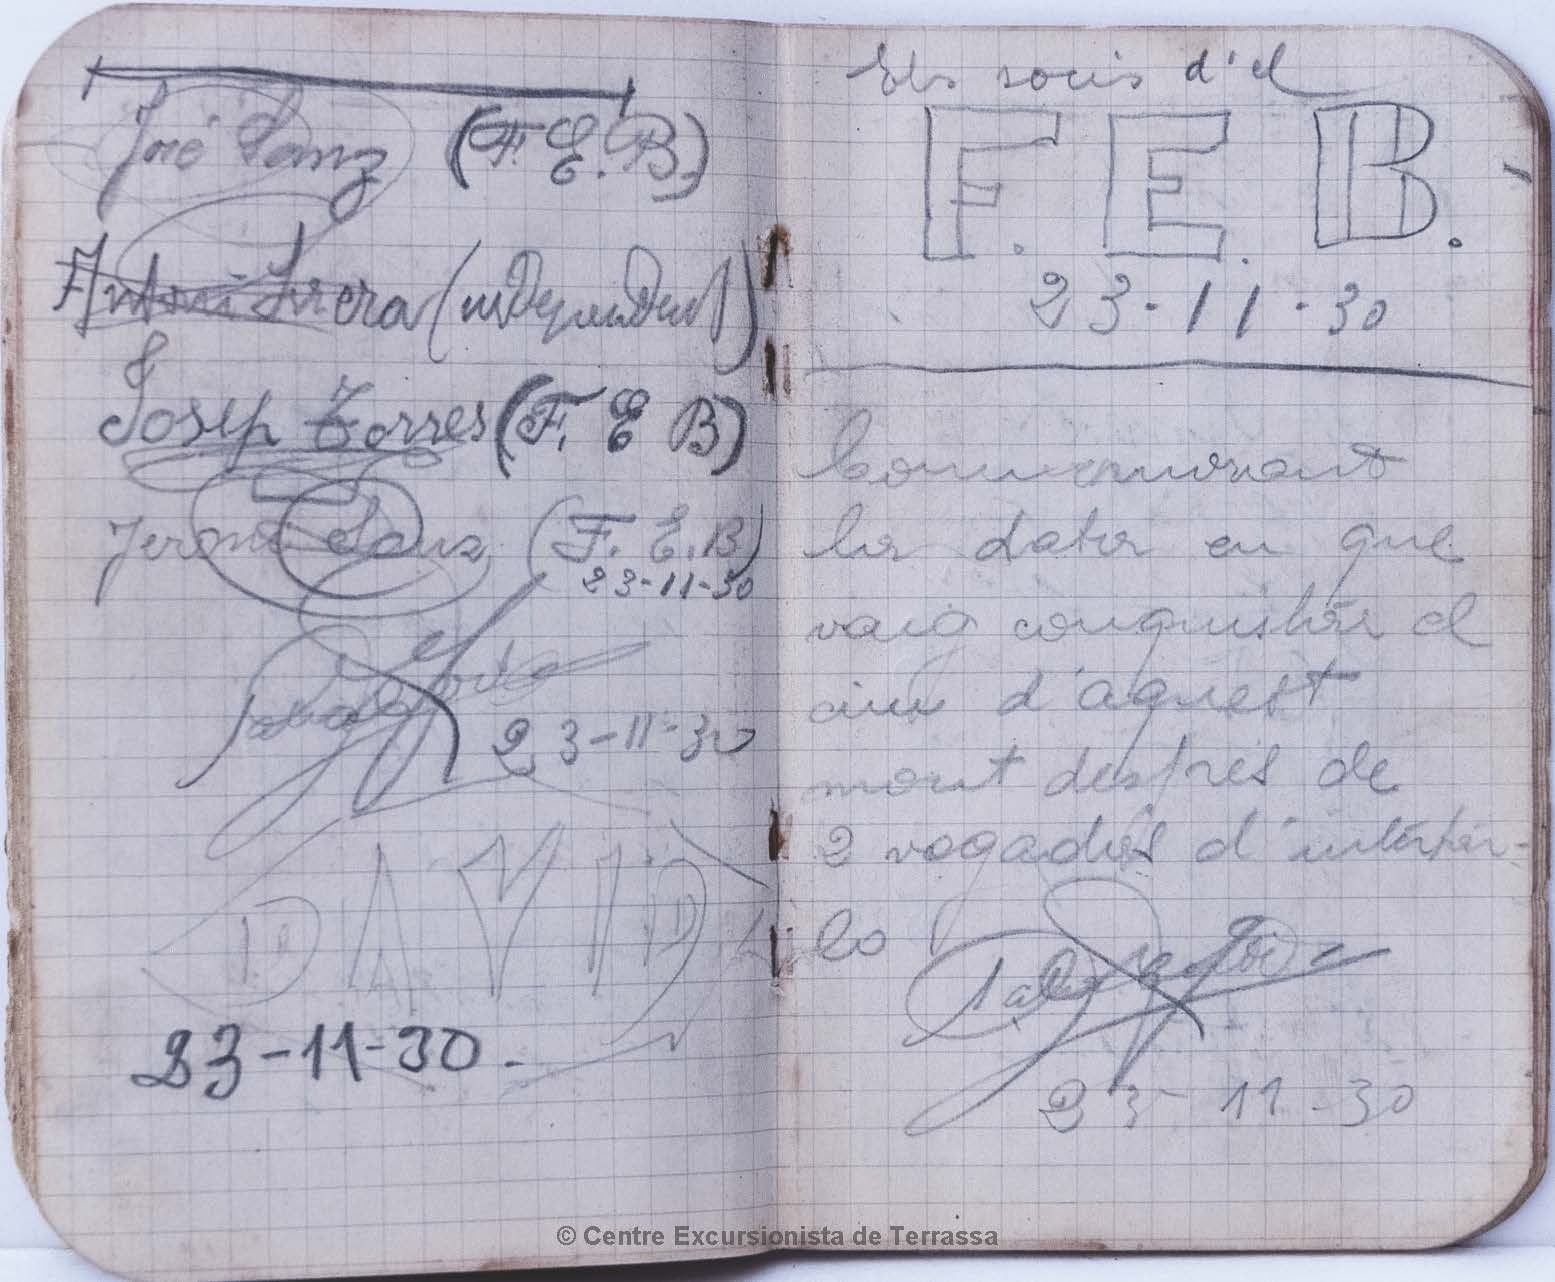 José Sanz (F.E.B.)
Antoni Frera (independent)
Josep Torres (F. E B)
Jeroni Sanz (F. E. B)
23-11-30
23-11-30
DAVID
23-11-30.
Els socis d'el
F. E. B.
23-11-30
Conmemorant
la data en que
vaig conquistar el
cim d'aquest
mont despres de
2 vogades d'intentar-
lo
23-11-30
© Centre Excursionista de Terrassa